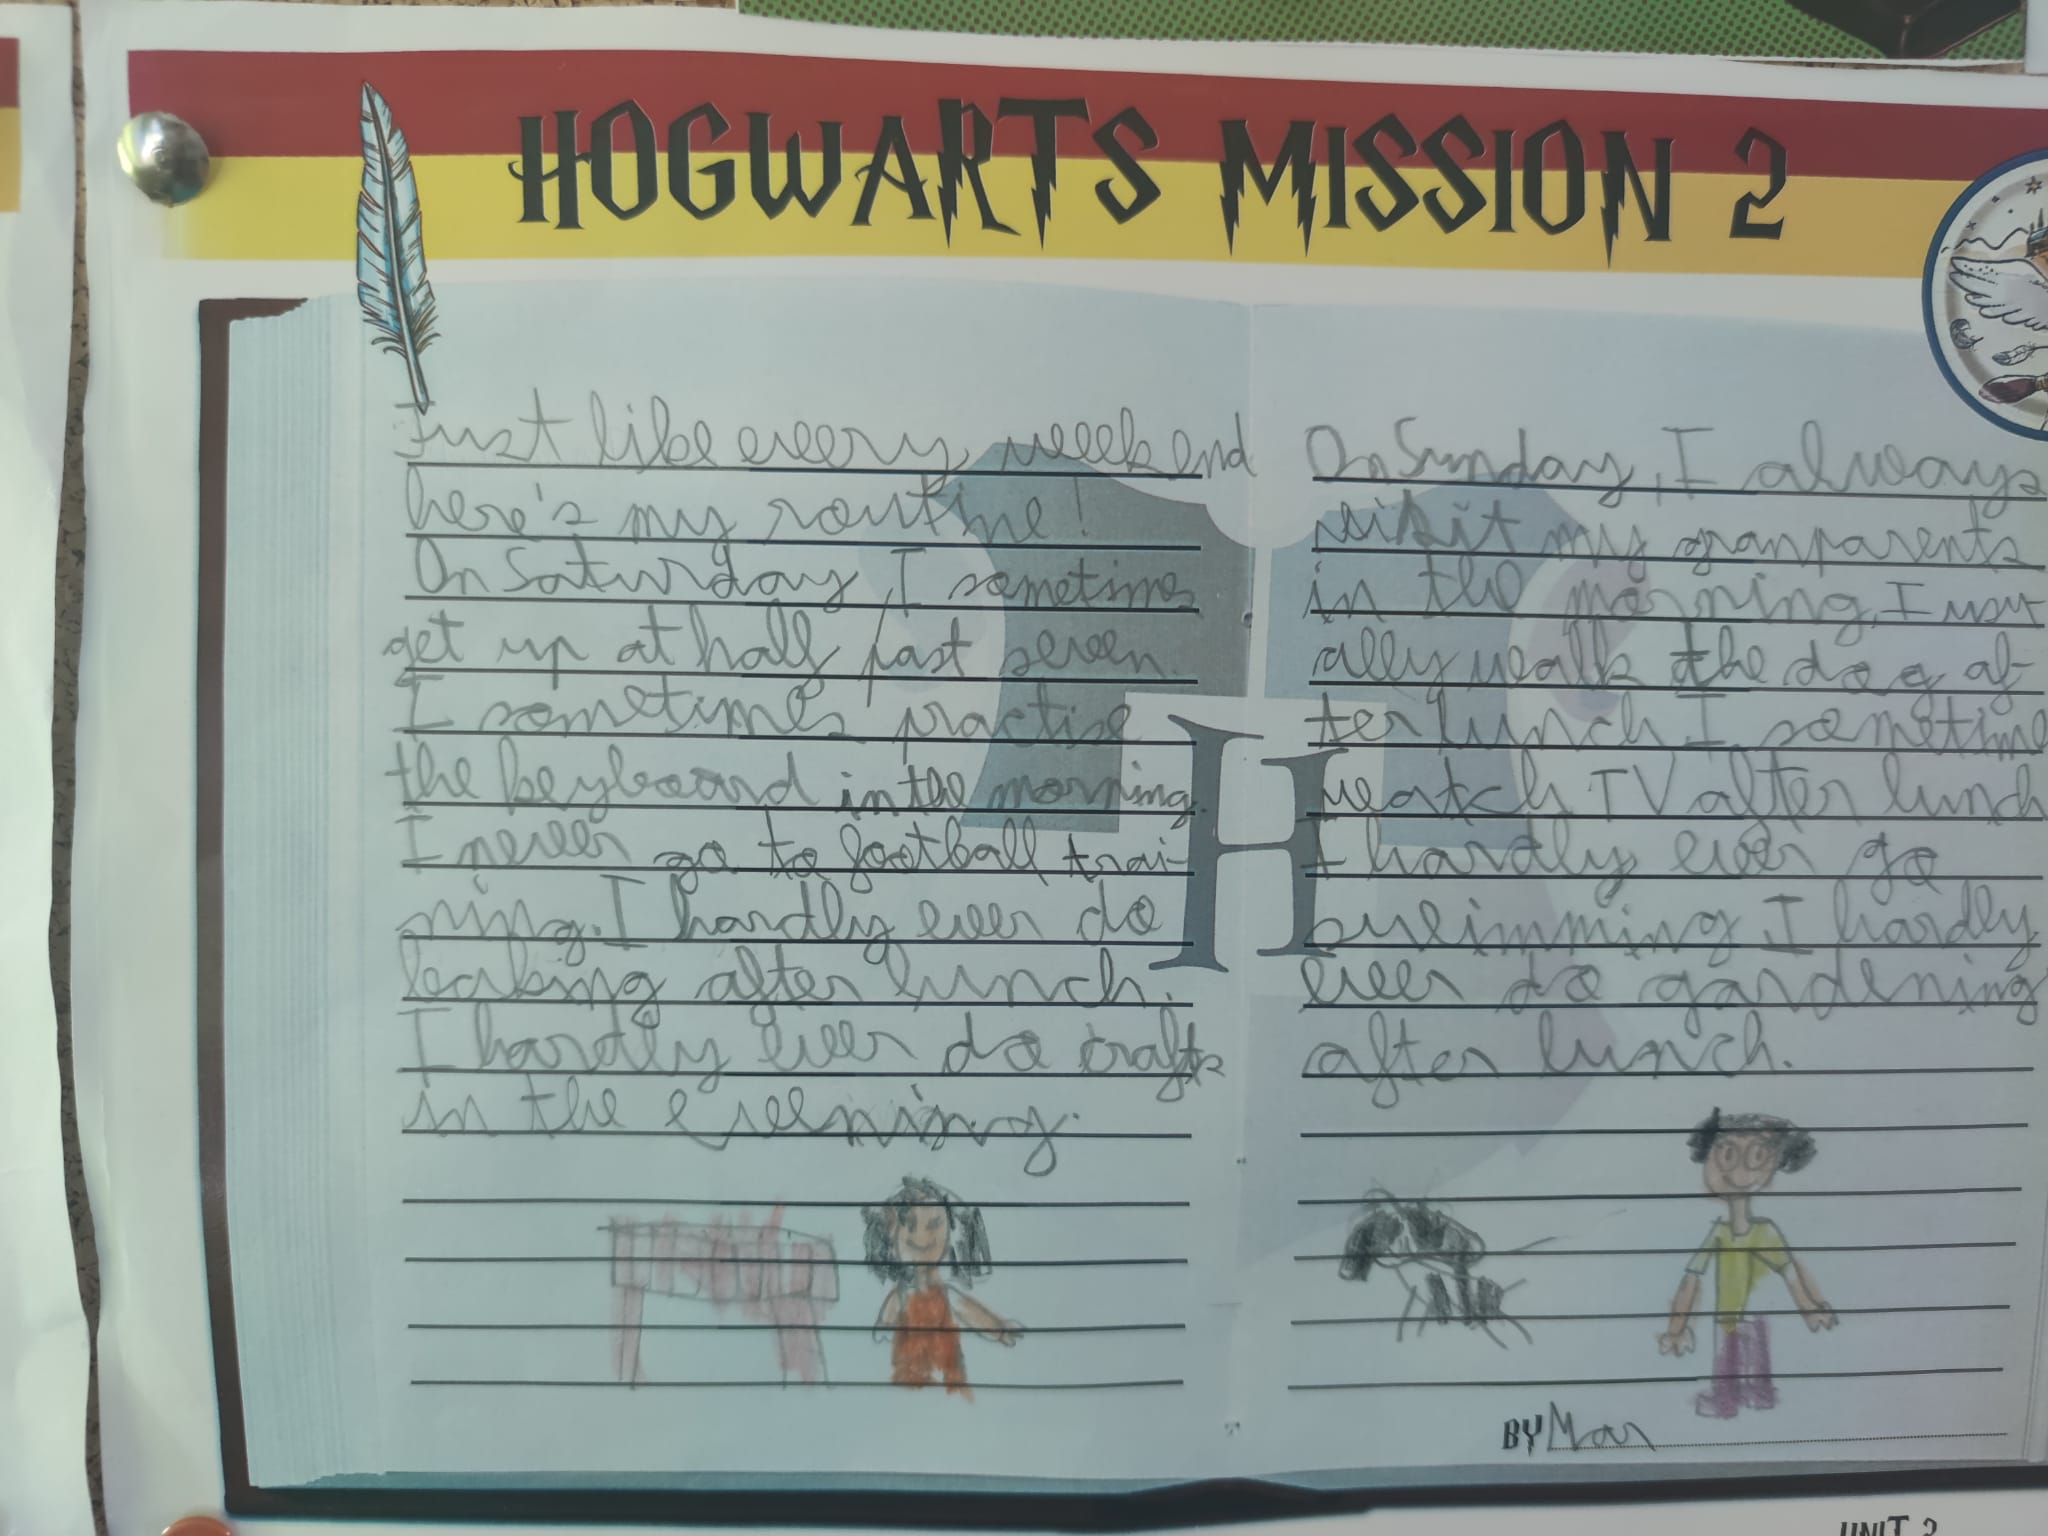 HOGWARTS MISSION 2
Just like every weekend
here's my routine!
On Saturday, I sometimes
get up at half past seven.
I sometimes practise
the keyboard in the morning.
I never go to football trai-
ning. I hardly ever do
baking after lunch.
I hardly ever do crafts
in the evening.
On Sunday, I always
visit my granparents
in the morning, I usu-
ally walk the dog af-
ter lunch, I sometime
watch TV after lunch
I hardly ever go
swimming I hardly
ever do gardening
after lunch.
H
BY Mar
UNIT 2